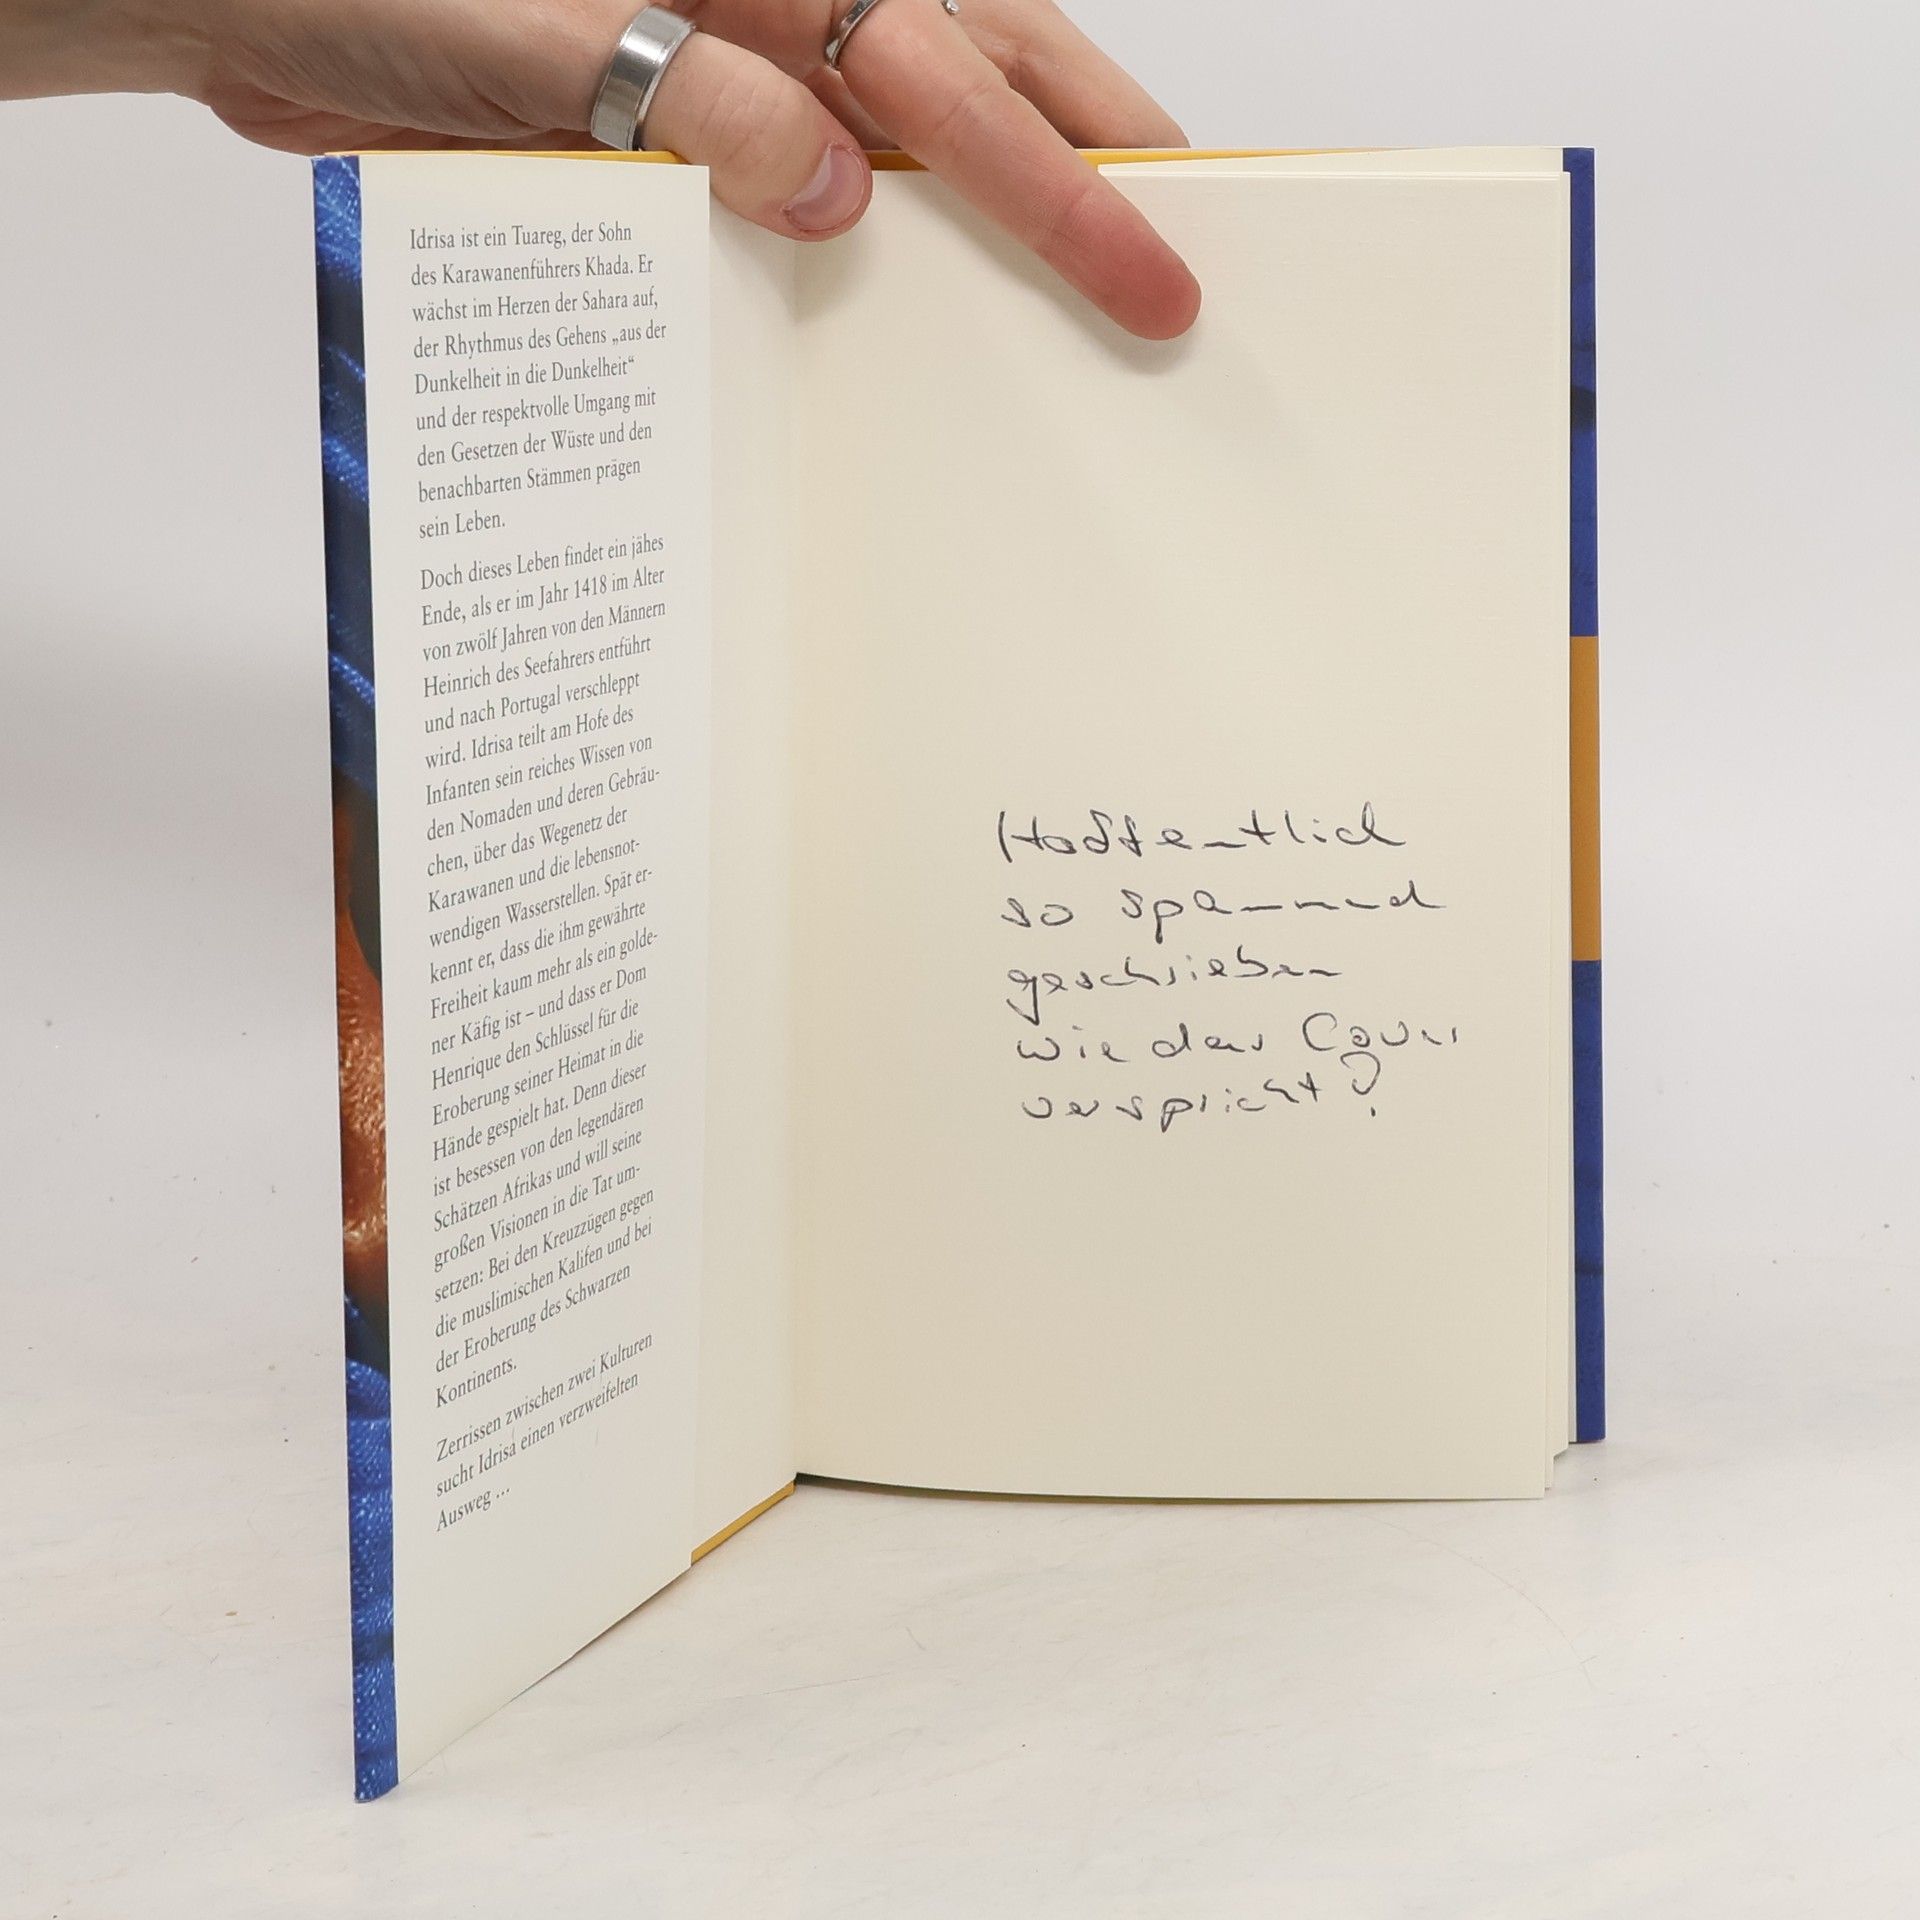 Idrisa ist ein Tuareg, der Sohn
des Karawanenführers Khada. Er
wächst im Herzen der Sahara auf,
der Rhythmus des Gehens „aus der
Dunkelheit in die Dunkelheit“
und der respektvolle Umgang mit
den Gesetzen der Wüste und den
benachbarten Stämmen prägen
sein Leben.
Doch dieses Leben findet ein jähes
Ende, als er im Jahr 1418 im Alter
von zwölf Jahren von den Männern
Heinrich des Seefahrers entführt
und nach Portugal verschleppt
wird. Idrisa teilt am Hofe des
Infanten sein reiches Wissen von
den Nomaden und deren Gebräu-
chen, über das Wegenetz der
Karawanen und die lebensnot-
wendigen Wasserstellen. Spät er-
kennt er, dass die ihm gewährte
Freiheit kaum mehr als ein golde-
ner Käfig ist – und dass er Dom
Henrique den Schlüssel für die
Eroberung seiner Heimat in die
Hände gespielt hat. Denn dieser
ist besessen von den legendären
Schätzen Afrikas und will seine
großen Visionen in die Tat um-
setzen: Bei den Kreuzzügen gegen
die muslimischen Kalifen und bei
der Eroberung des Schwarzen
Kontinents.
Zerrissen zwischen zwei Kulturen
sucht Idrisa einen verzweifelten
Ausweg ...
Hoffentlich
so spannend
geschrieben
wie das Cover
verspricht?